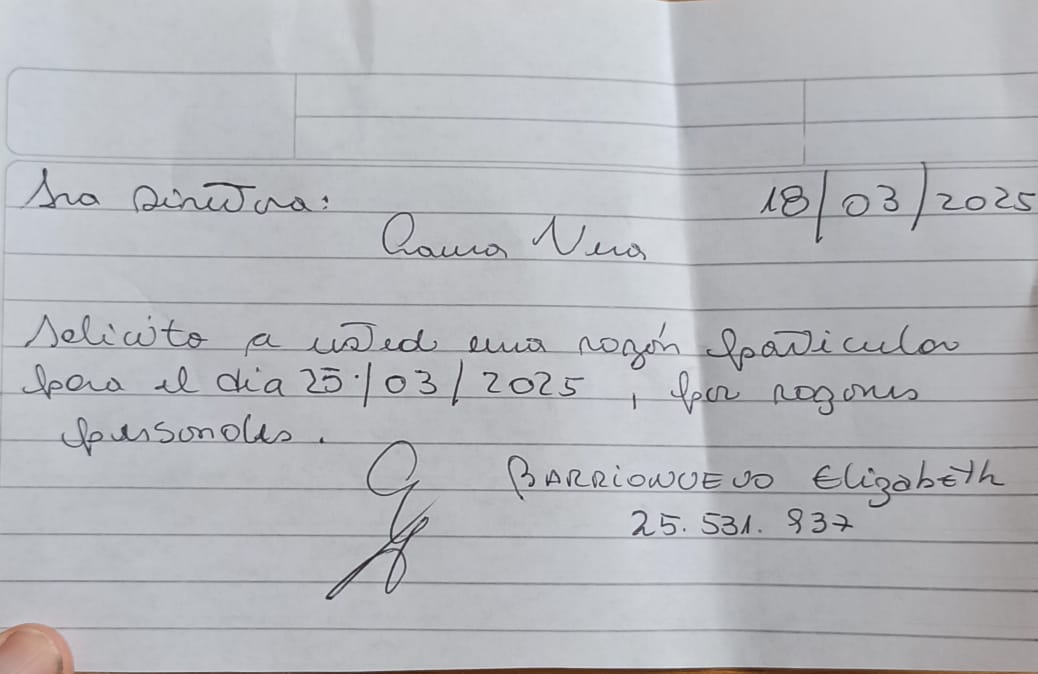 Sra Directora: 18/03/2025
Laura Vera
Solicito a usted una razón particular
para el día 25/03/2025, por razones
personales.
BARRIONUEVO Elizabeth
25.531.937